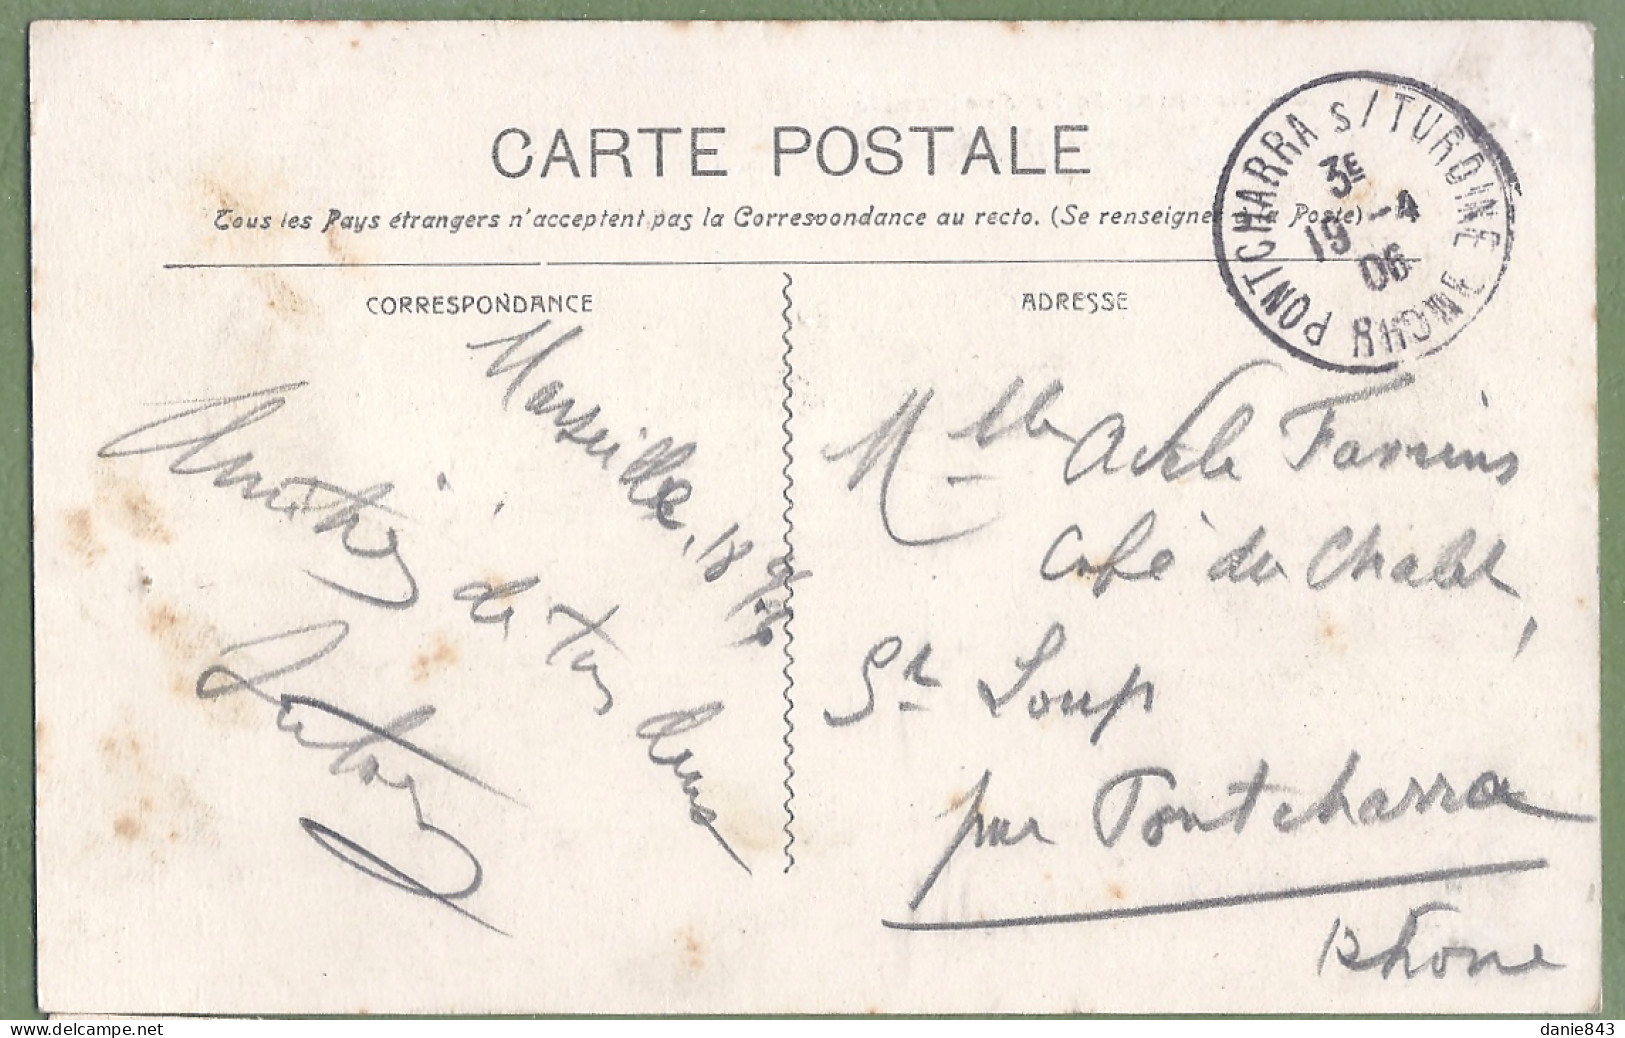 CARTE POSTALE
Tous les Pays étrangers n'acceptent pas la Correspondance au recto. (Se renseigner à la Poste)
PONTCHARRA S/TURDINE RHONE
3E
19 -4
06
CORRESPONDANCE
ADRESSE
Marseille, 18
de tous deux
Mlle Adèle
Café du Chalet,
St Loup
par Pontcharra
Rhône
danie843